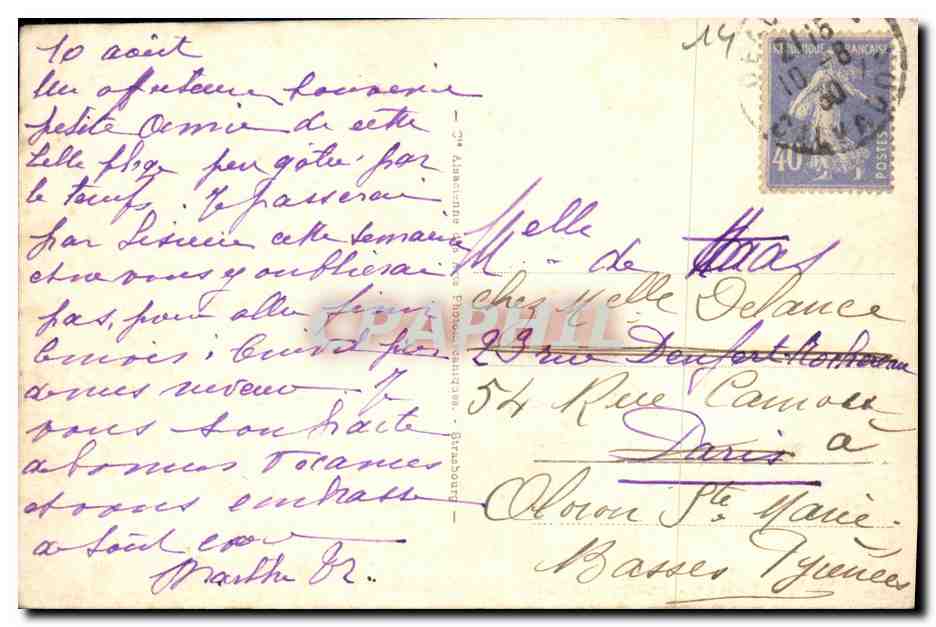 10 août
Un affectueux souvenir
petite amie de cette
belle plage peu gâtée par
le temps. Je passerai
par Lisieux cette semaine
et ne vous y oublierai
pas, pour aller finir
le mois
de mes neveux. Je
vous souhaite
de bonnes vacances
et vous embrasse
de tout cœur
Marthe
14
REPUBLIQUE FRANÇAISE
40
POSTES
10-8
30
CALVADOS
Cie Alsacienne des Arts Photomécaniques. - Strasbourg
CPAPHIL
Melle
M. de Haas
chez Melle Delance
23 rue Denfert Rochereau
54 Rue Camou
Paris à
Oloron Ste Marie
Basses Pyrénées